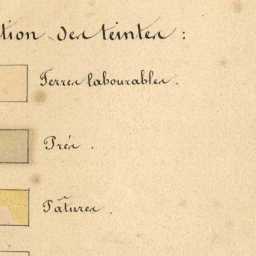 tion des teintes :
Terres labourables.
Prés.
Pâtures.